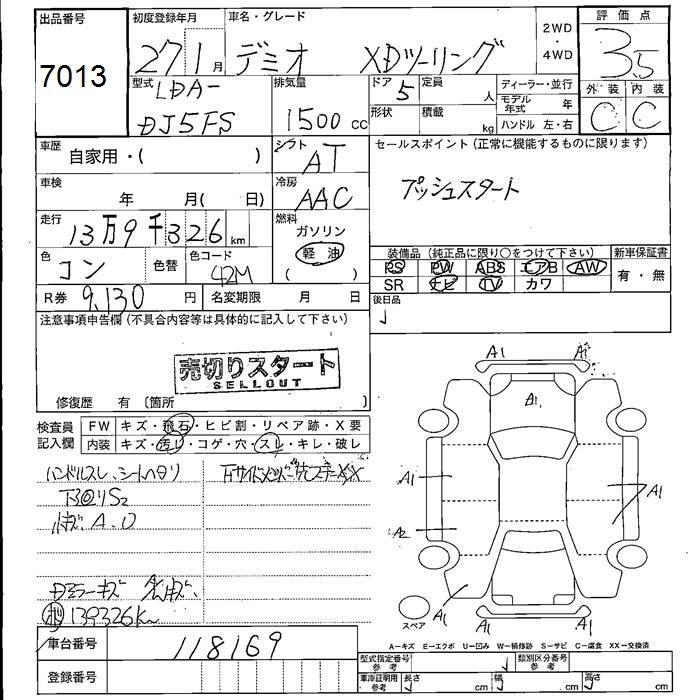 出品番号
7013
初度登録年月
27 1 月
車名・グレード
デミオ XDツーリング
2WD
・
4WD
評価点
3.5
外装 内装
C C
型式
LDA-
DJ5FS
排気量
1500 cc
ドア 5
定員 人
形状
積載 kg
ディーラー・並行
モデル年式 年
ハンドル 左・右
車歴
自家用・( )
シフト
AT
セールスポイント(正常に機能するものに限ります)
プッシュスタート
車検
年 月( 日)
冷房
AAC
走行
13万9千326km
燃料
ガソリン
軽油
( )
色
コン
色替
色コード
42M
装備品(純正品に限り○をつけて下さい)
PS PW ABS エアB AW
SR ナビ TV カワ
新車保証書
有・無
R券 9,130 円
名変期限 月 日
後日品
注意事項申告欄(不具合内容等は具体的に記入して下さい)
売切りスタート
SELLOUT
修復歴 有(箇所 )
検査員
記入欄
FW キズ・飛石・ヒビ割・リペア跡・X要
内装 キズ・汚れ・コゲ・穴・スレ・キレ・破レ
ハンドルスレ、シートヘタリ
小キズA.U
139326km
A1 A1
A1
A1
A1
A2
A1 A1
スペア
A-キズ E-エクボ U-凹み W-補修跡 S-サビ C-腐食 XX-交換済
車台番号
118169
登録番号
型式指定番号
参考
類別区分番号
参考
車庫証明用
参考
長さ cm
幅 cm
高さ cm